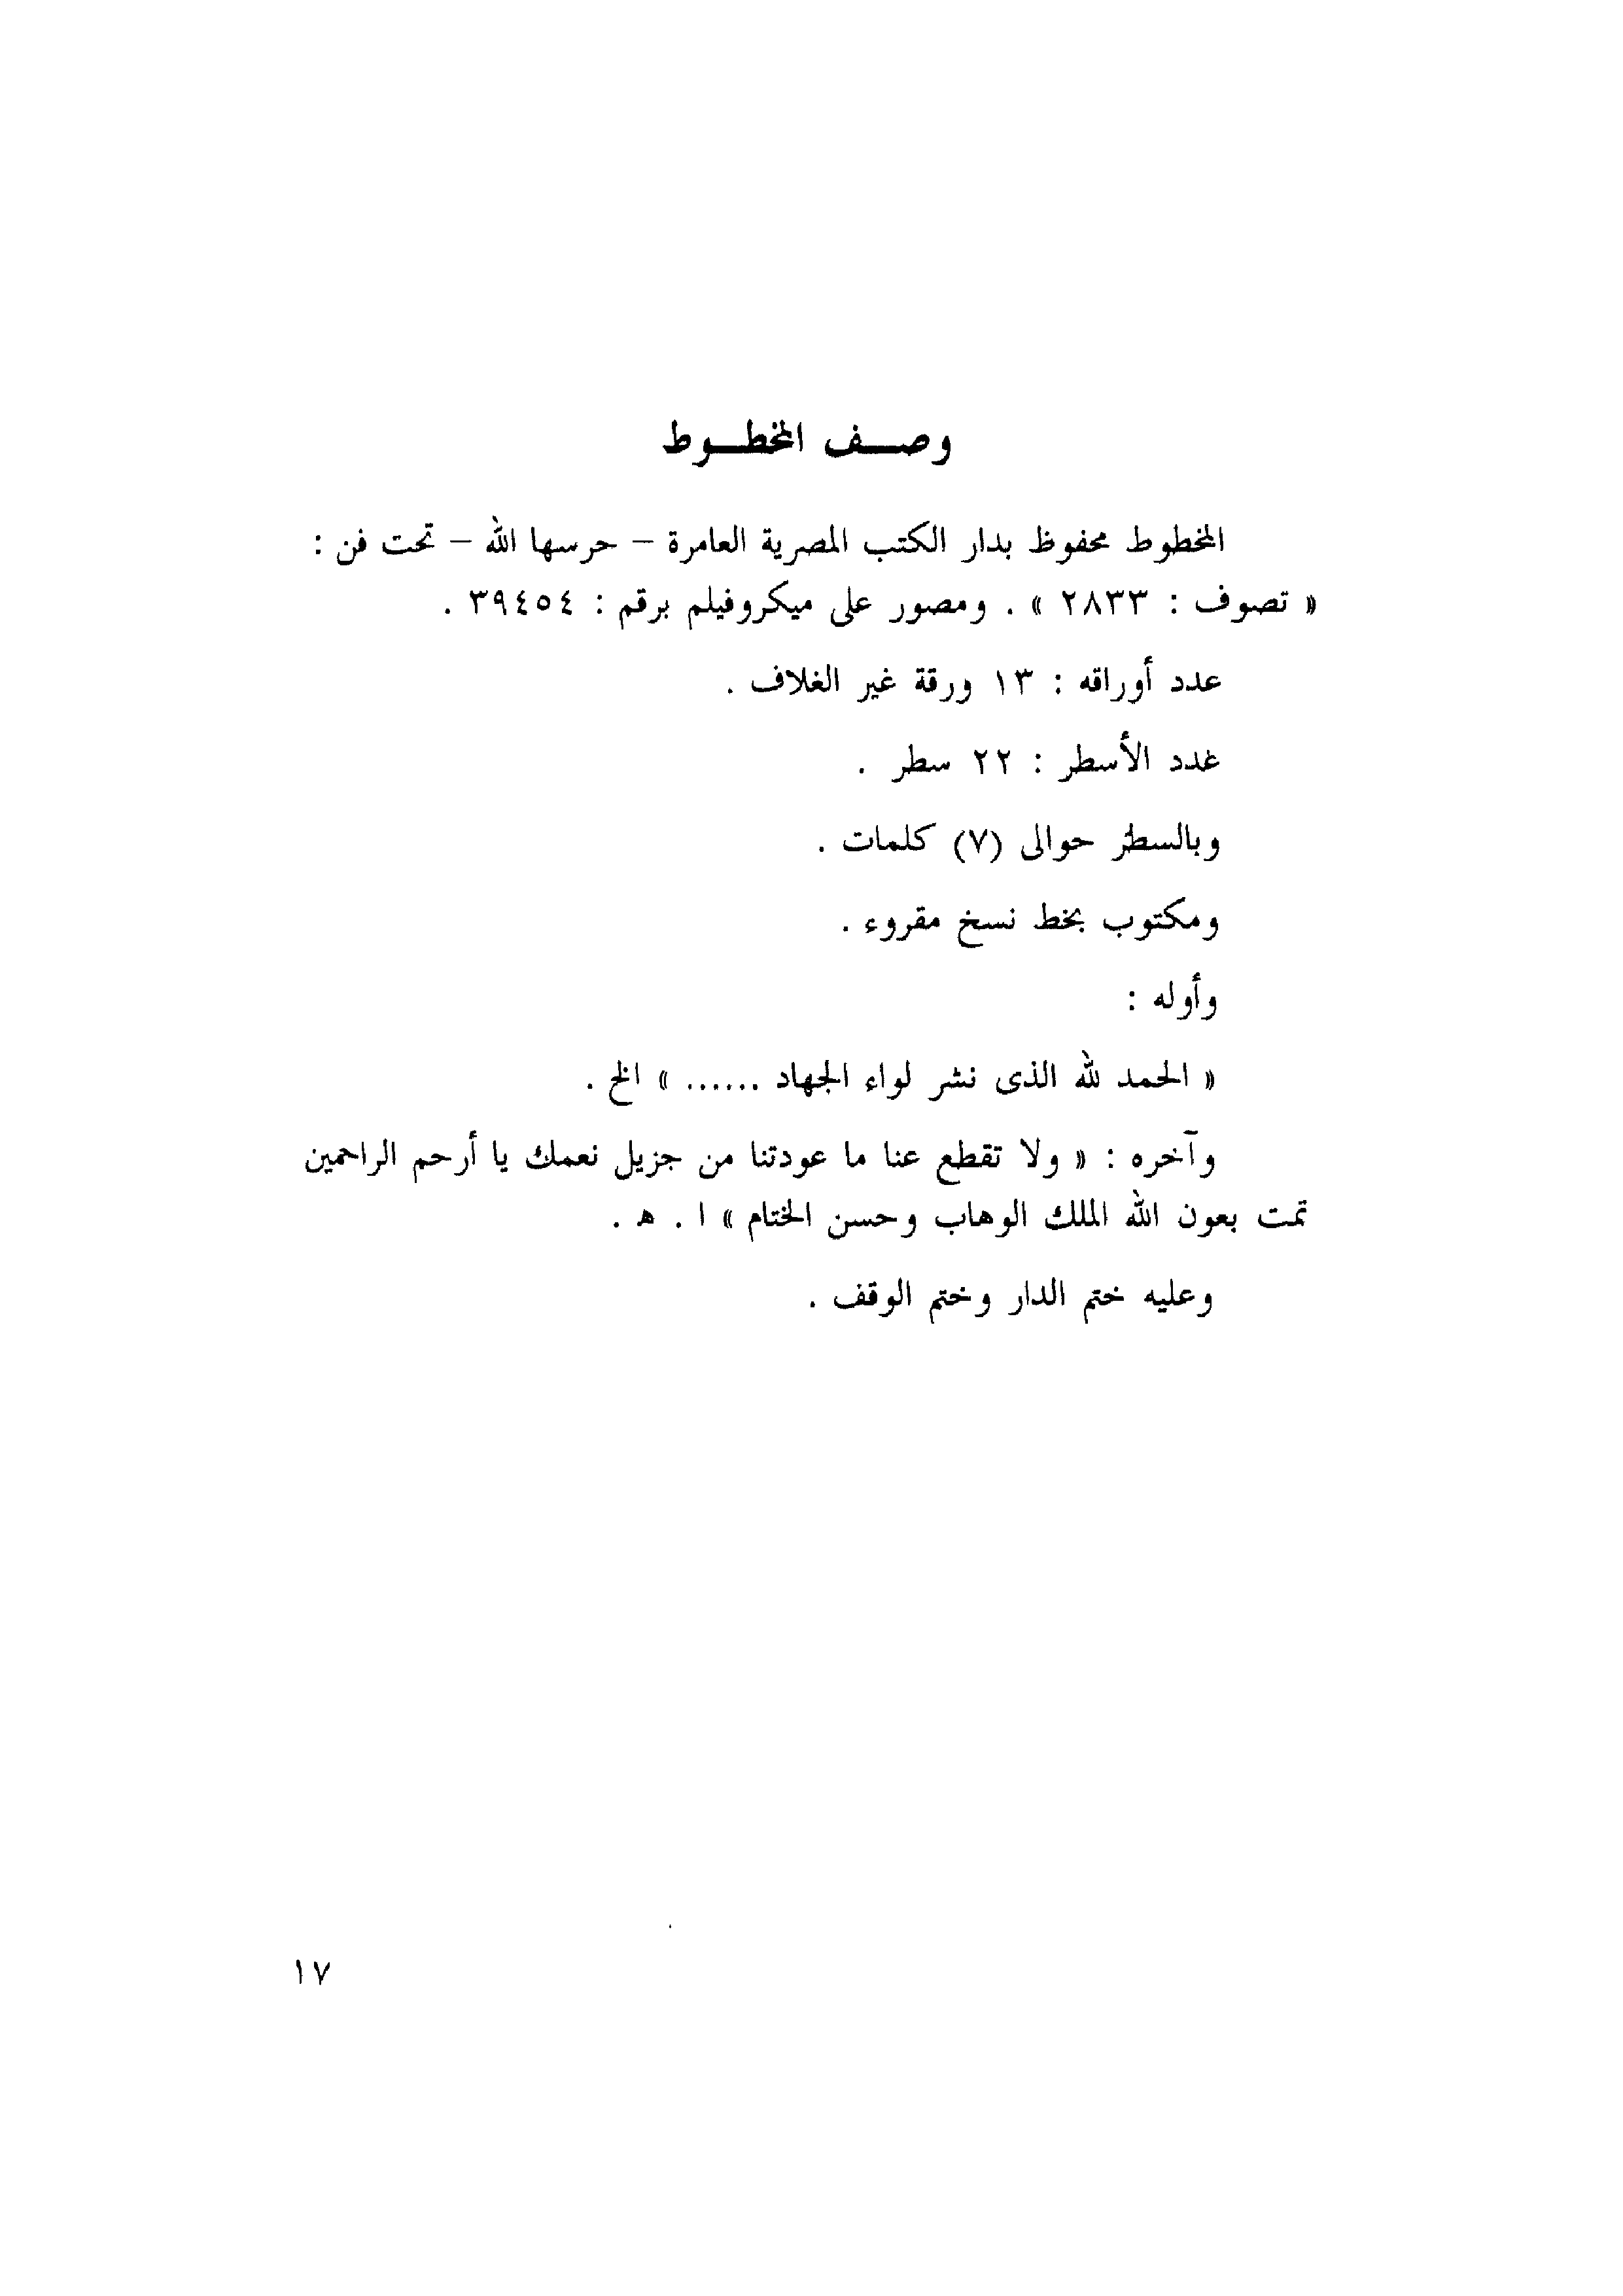 وصف المخطوط
المخطوط محفوظ بدار الكتب المصرية العامرة – حرسها الله – تحت فن :
« تصوف : ٢٨٣٣ » . ومصور على ميكروفيلم برقم : ٣٩٤٥٤ .
عدد أوراقه : ١٣ ورقة غير الغلاف .
عدد الأسطر : ٢٢ سطر .
وبالسطر حوالى (٧) كلمات .
ومكتوب بخط نسخ مقروء .
وأوله :
« الحمد لله الذى نشر لواء الجهاد ...... » الخ .
وآخره : « ولا تقطع عنا ما عودتنا من جزيل نعمك يا أرحم الراحمين
تمت بعون الله الملك الوهاب وحسن الختام » ا . هـ .
وعليه ختم الدار وختم الوقف .
١٧